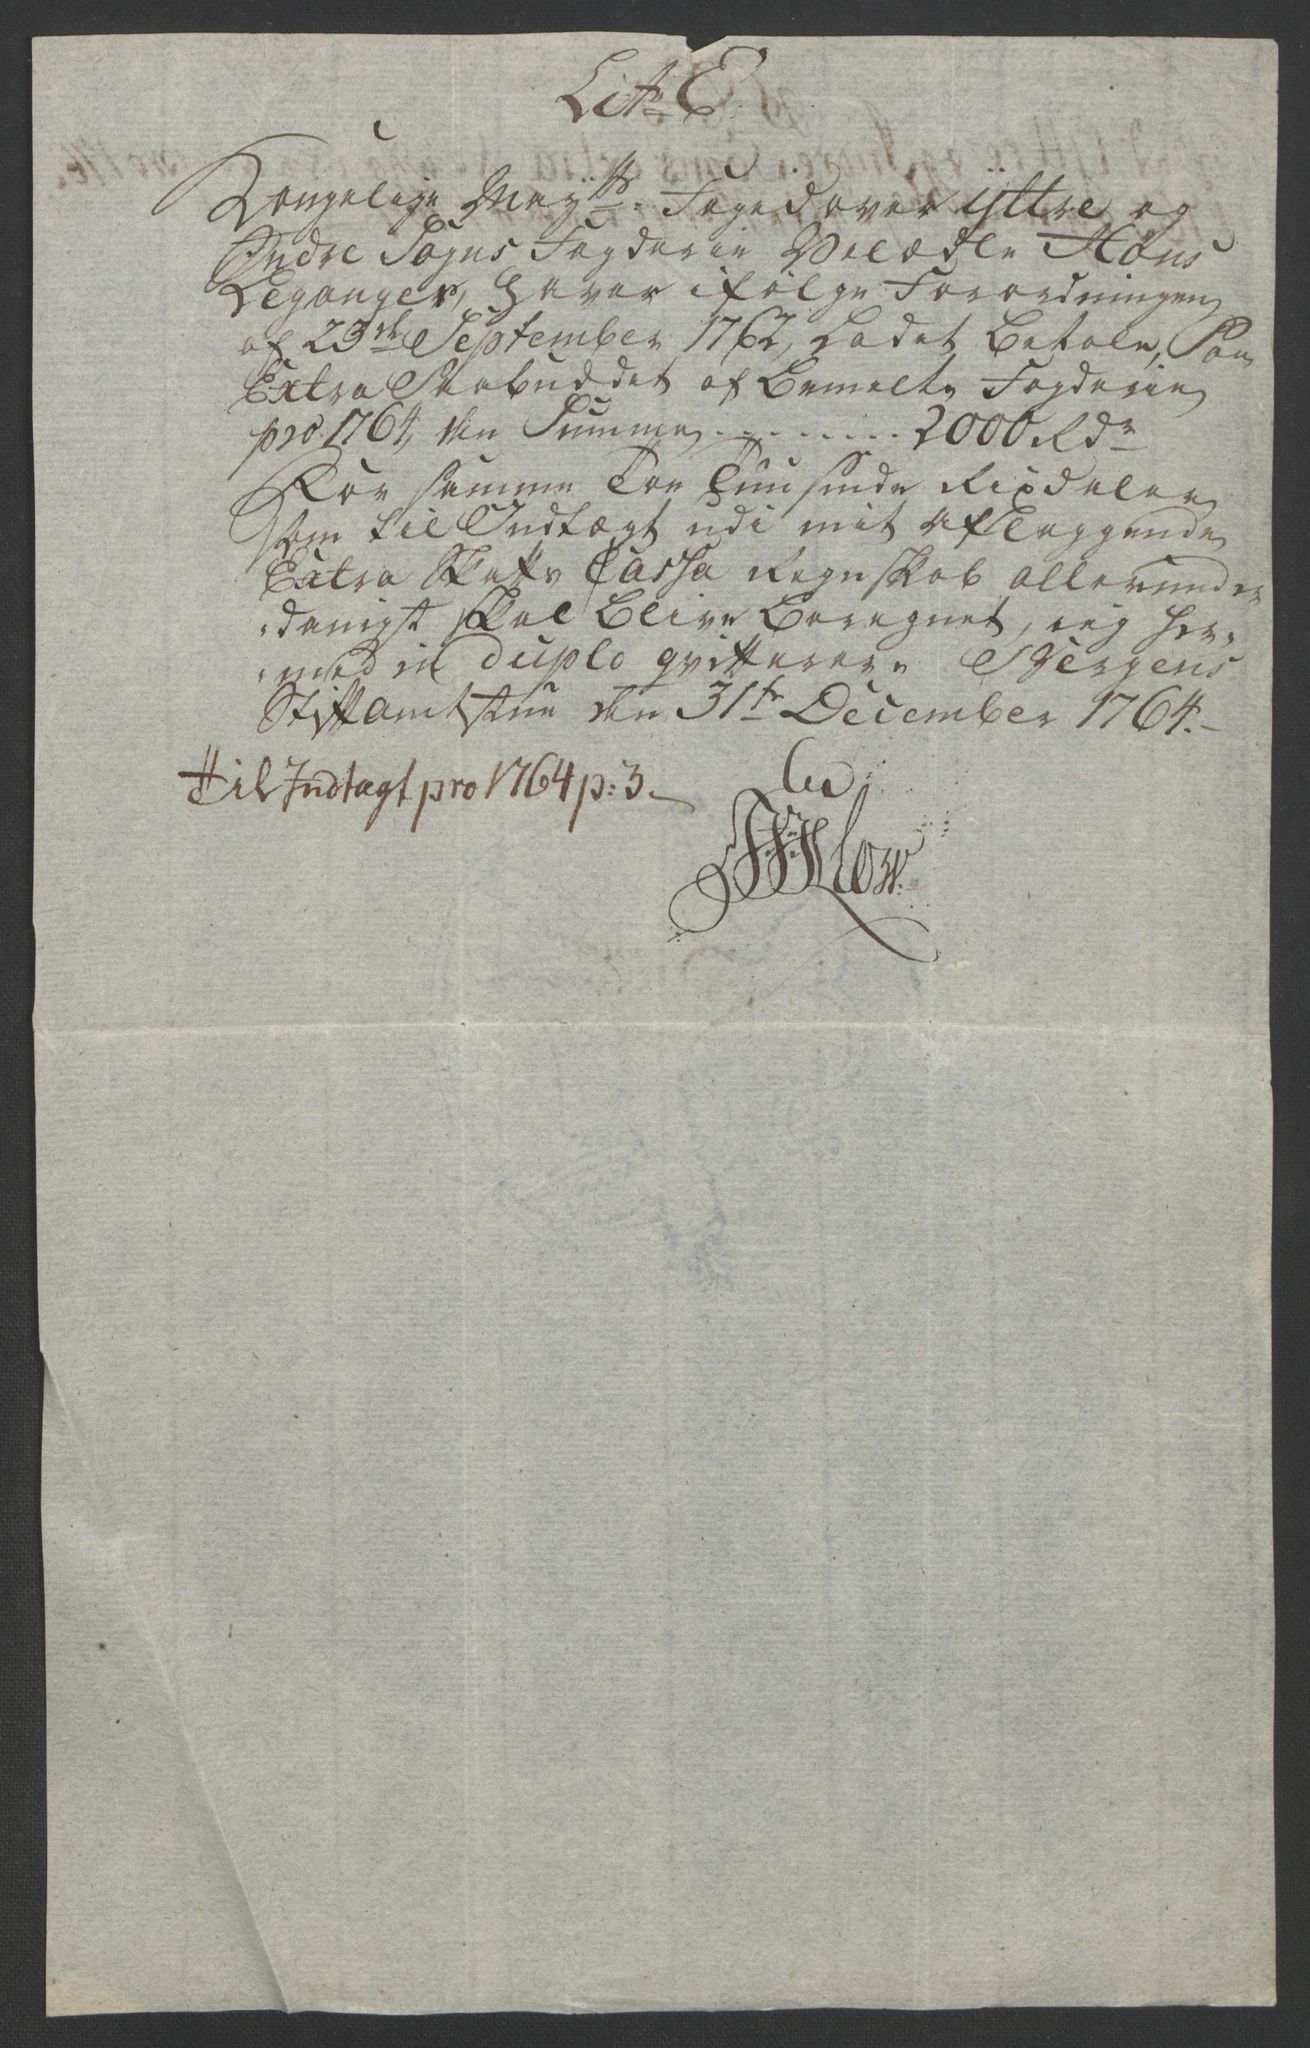 Lit: E.
Kongelige Mayts: Foged over Ÿttre og
Indre Sogns Fogderie Velædle Hans
Leganger, haver ifölge Forordningen
af 23de September 1762, Ladet Betale, Som
Extra Skatbuddet af Bemelte Fogderie
pro 1764, den Summa . . . . . . . . . 2000 Rdr
For samme Toe Tüusinde Rixdaler
som til Indtægt udi mit aflæggende
Extra Skatts Cassa Regnskab allerunder
danigst skal blive Beregnet, ieg her-
med in duplo qvitterer. Bergens
Stiftamtstue den 31te December 1764.
Til Indtægt pro 1764 p: 3.